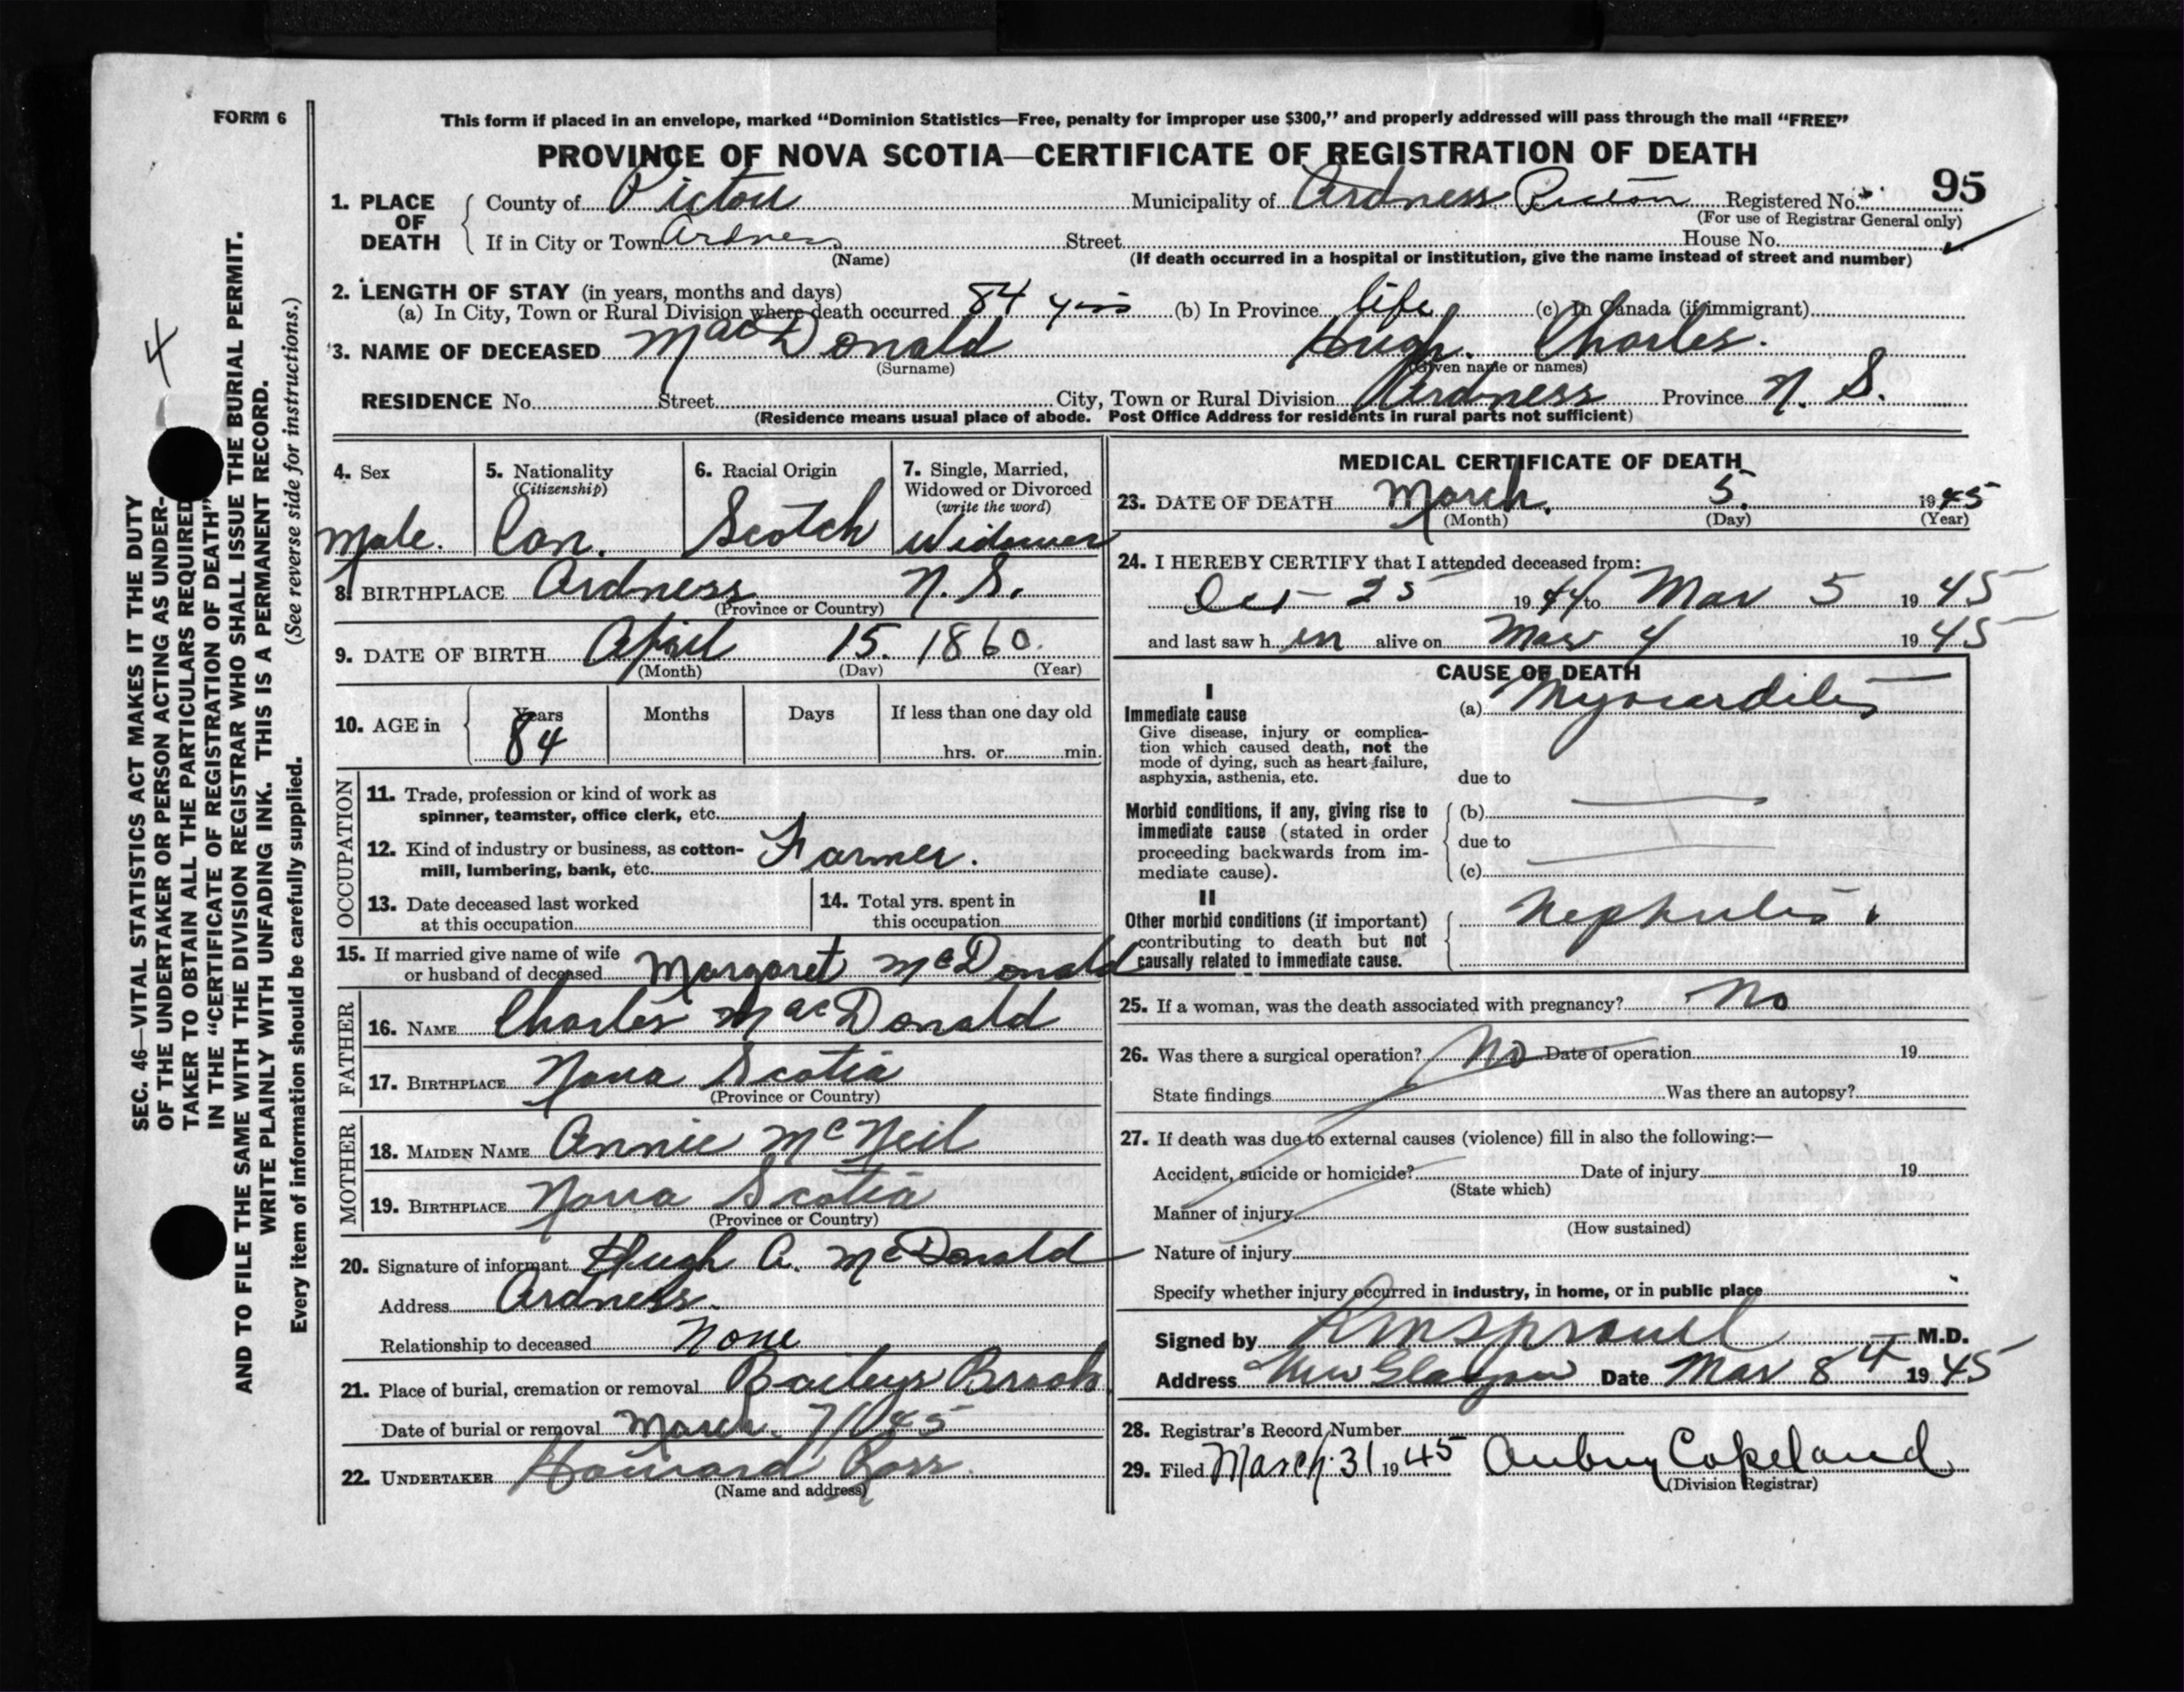 FORM 6
This form if placed in an envelope, marked “Dominion Statistics—Free, penalty for improper use $300,” and properly addressed will pass through the mail “FREE”
PROVINCE OF NOVA SCOTIA—CERTIFICATE OF REGISTRATION OF DEATH
95
1. PLACE OF DEATH
County of Pictou Municipality of Ardness Pictou Registered No.
(For use of Registrar General only)
If in City or Town Ardness Street House No.
(Name) (If death occurred in a hospital or institution, give the name instead of street and number)
2. LENGTH OF STAY (in years, months and days)
(a) In City, Town or Rural Division where death occurred 84 yrs (b) In Province life (c) In Canada (if immigrant)
3. NAME OF DECEASED MacDonald Hugh. Charles.
(Surname) (Given name or names)
RESIDENCE No. Street City, Town or Rural Division Ardness Province N. S.
(Residence means usual place of abode. Post Office Address for residents in rural parts not sufficient)
4. Sex
Male.
5. Nationality
(Citizenship)
Can.
6. Racial Origin
Scotch
7. Single, Married,
Widowed or Divorced
(write the word)
Widower
8. BIRTHPLACE Ardness. N. S.
(Province or Country)
9. DATE OF BIRTH April 15. 1860.
(Month) (Day) (Year)
10. AGE in Years Months Days If less than one day old
84 hrs. or min.
OCCUPATION
11. Trade, profession or kind of work as
spinner, teamster, office clerk, etc.
12. Kind of industry or business, as cotton-
mill, lumbering, bank, etc. Farmer.
13. Date deceased last worked
at this occupation
14. Total yrs. spent in
this occupation
15. If married give name of wife
or husband of deceased Margaret McDonald
FATHER
16. NAME Charles MacDonald
17. BIRTHPLACE Nova Scotia
(Province or Country)
MOTHER
18. MAIDEN NAME Annie McNeil
19. BIRTHPLACE Nova Scotia
(Province or Country)
20. Signature of informant Hugh A. McDonald
Address Ardness.
Relationship to deceased None
21. Place of burial, cremation or removal Baileys Brook
Date of burial or removal March. 7 1945
22. UNDERTAKER Howard Ross.
(Name and address)
MEDICAL CERTIFICATE OF DEATH
23. DATE OF DEATH March. 5. 1945
(Month) (Day) (Year)
24. I HEREBY CERTIFY that I attended deceased from:
Oct 25 1944 to Mar 5 1945
and last saw him alive on Mar 4 1945
CAUSE OF DEATH
I
Immediate cause
Give disease, injury or complica-
tion which caused death, not the
mode of dying, such as heart failure,
asphyxia, asthenia, etc.
(a) Myocarditis
due to
Morbid conditions, if any, giving rise to
immediate cause (stated in order
proceeding backwards from im-
mediate cause).
(b)
due to
(c)
II
Other morbid conditions (if important)
contributing to death but not
causally related to immediate cause.
Nephritis.
25. If a woman, was the death associated with pregnancy? No
26. Was there a surgical operation? No Date of operation 19
State findings Was there an autopsy?
27. If death was due to external causes (violence) fill in also the following:—
Accident, suicide or homicide? Date of injury 19
(State which)
Manner of injury
(How sustained)
Nature of injury
Specify whether injury occurred in industry, in home, or in public place
Signed by M.D.
Address New Glasgow Date Mar 8th 1945
28. Registrar's Record Number
29. Filed March 31 1945 Aubrey Copeland
(Division Registrar)
4
SEC. 46—VITAL STATISTICS ACT MAKES IT THE DUTY
OF THE UNDERTAKER OR PERSON ACTING AS UNDER-
TAKER TO OBTAIN ALL THE PARTICULARS REQUIRED
IN THE “CERTIFICATE OF REGISTRATION OF DEATH”
AND TO FILE THE SAME WITH THE DIVISION REGISTRAR WHO SHALL ISSUE THE BURIAL PERMIT.
WRITE PLAINLY WITH UNFADING INK. THIS IS A PERMANENT RECORD.
Every item of information should be carefully supplied. (See reverse side for instructions.)